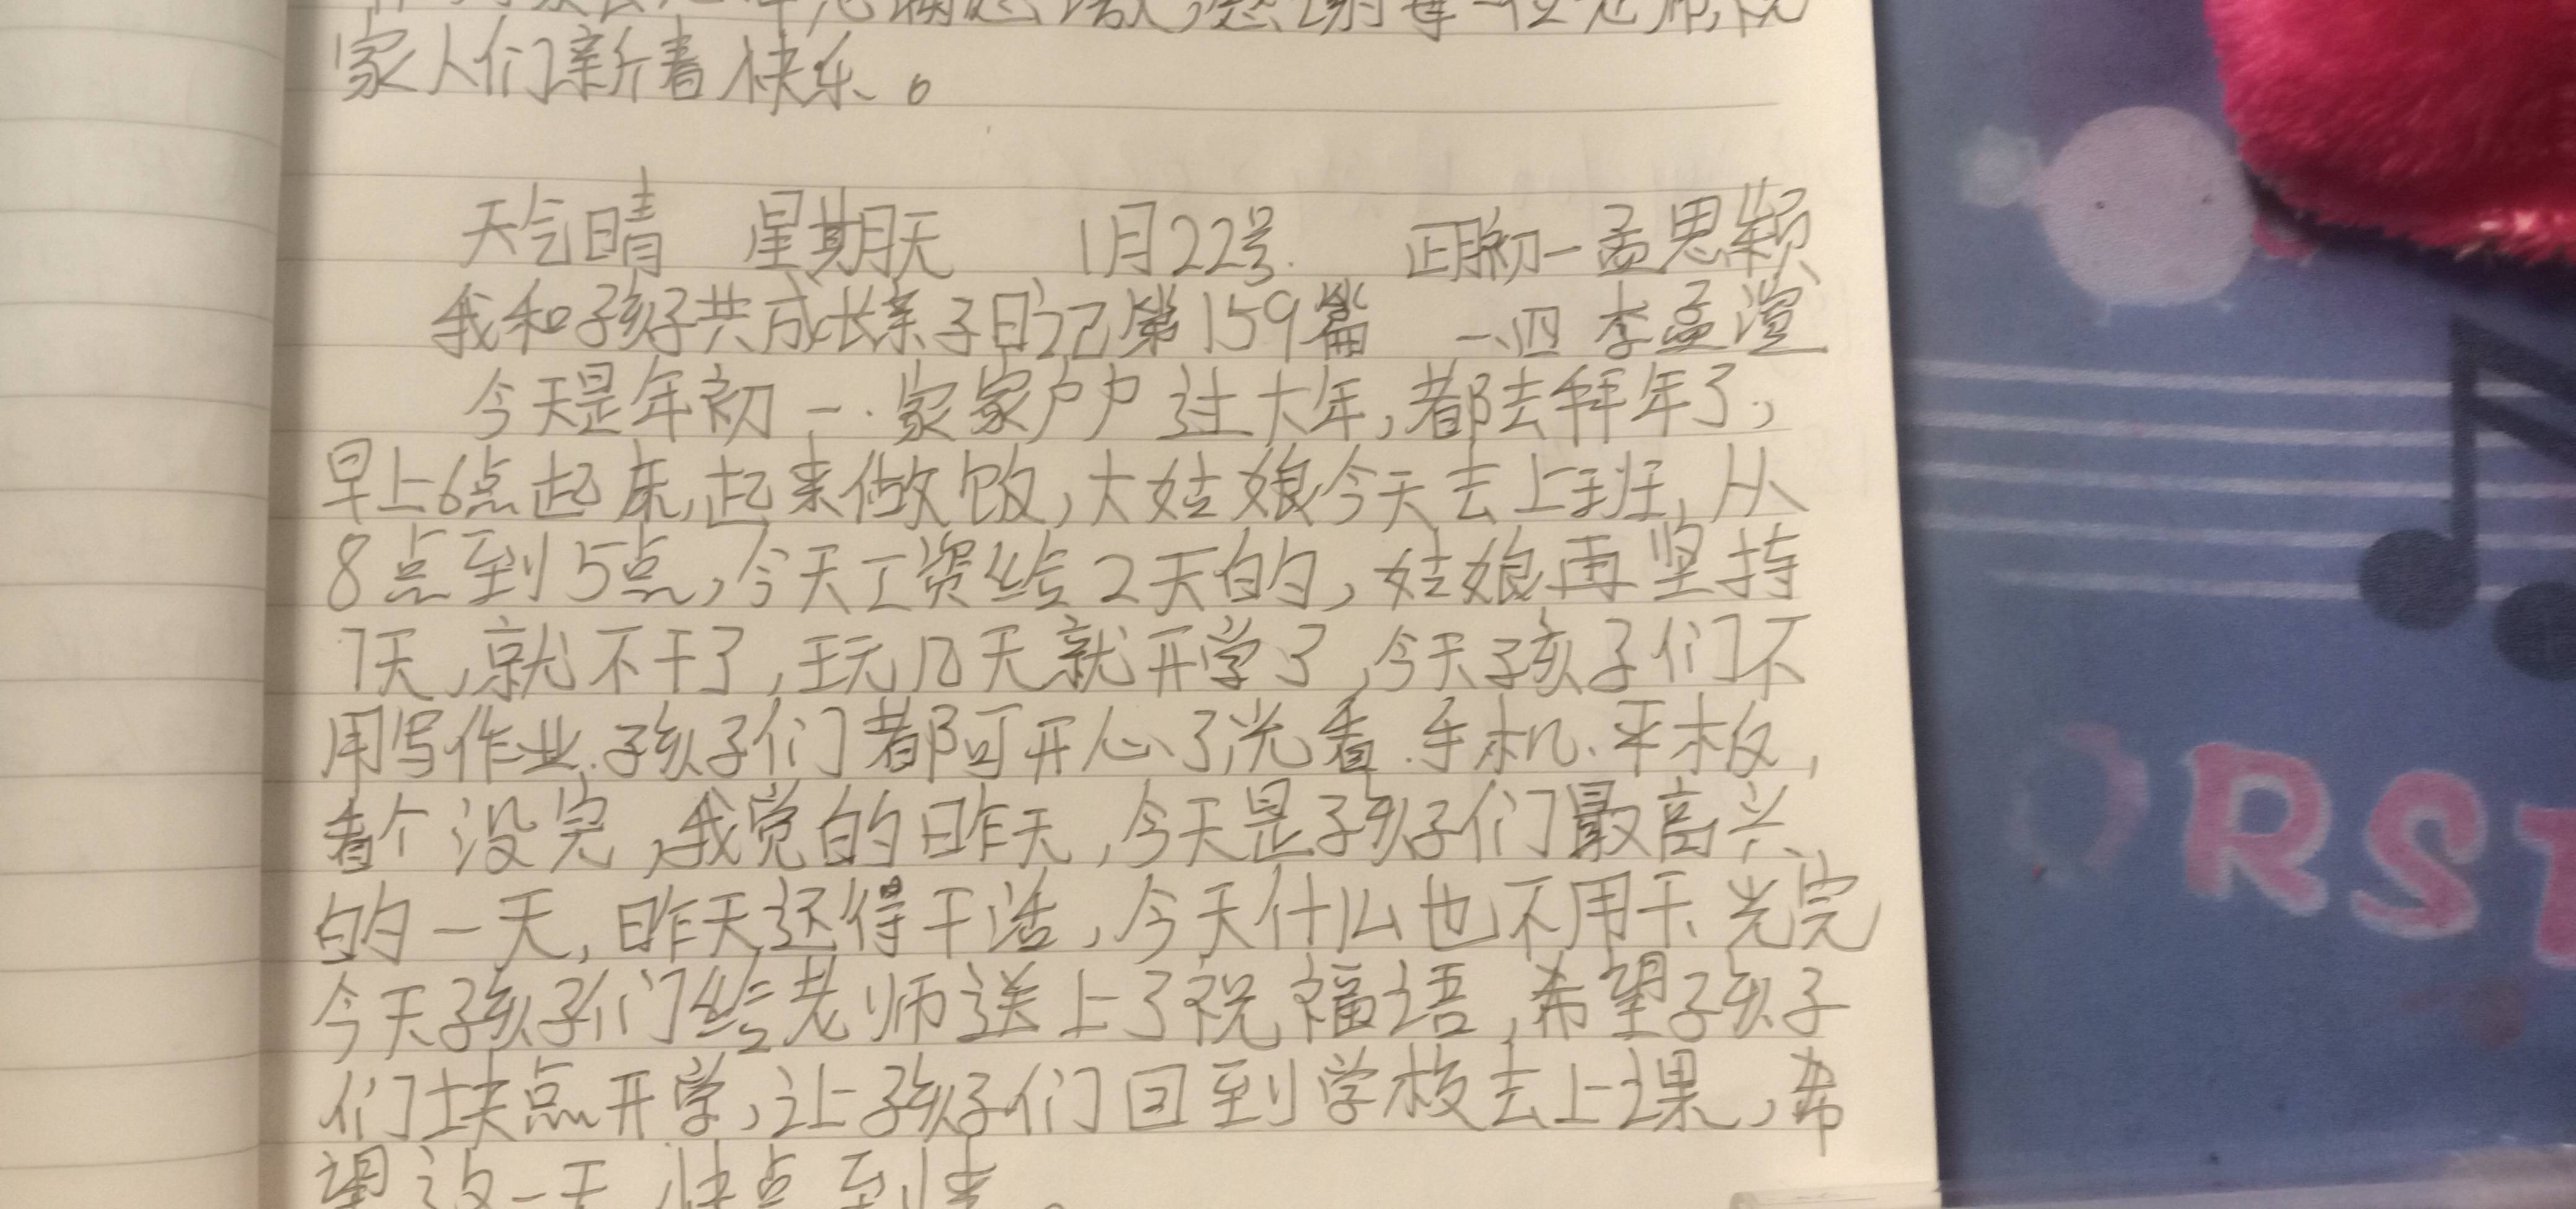 家人们新春快乐。
天气晴 星期天 1月22号. 正月初一 孟思颖
我和孩子共成长亲子日记第159篇 一、四 李孟渲
今天是年初一.家家户户过大年,都去拜年了,
早上6点起床,起来做饭,大姑娘今天去上班,从
8点到5点,今天工资给2天的,姑娘再坚持
7天,就不干了,玩几天就开学了,今天孩子们不
用写作业.孩子们都可开心了,光看.手机、平板,
看个没完,我觉的昨天,今天是孩子们最高兴
的一天,昨天还得干活,今天什么也不用干、光完
今天孩子们给老师送上了祝福语,希望孩子
们块点开学,让孩子们回到学校去上课,希
望这一天,快点到
RS